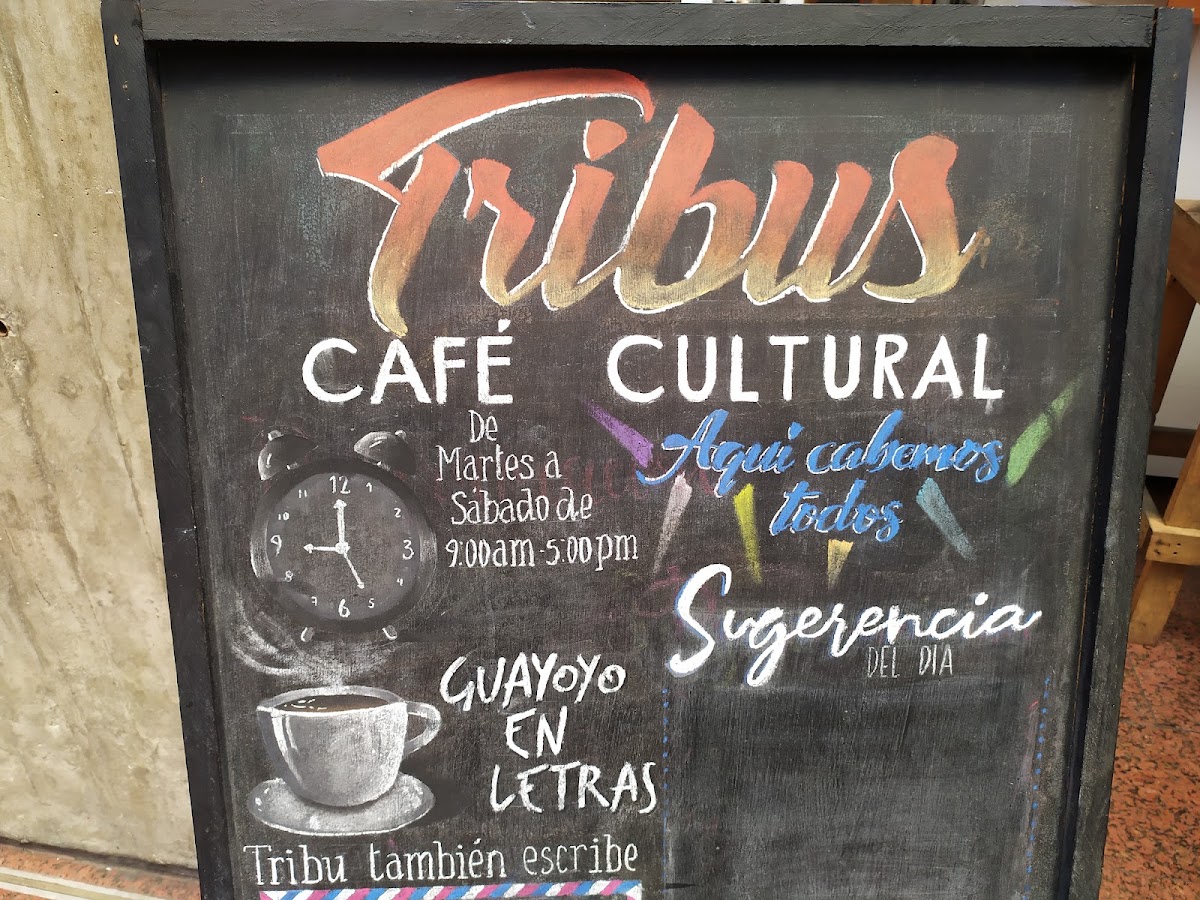 Tribus
CAFÉ CULTURAL
De
Martes a
Sábado de
9:00am - 5:00pm
12
1
2
3
4
5
6
7
8
9
10
11
Aqui cabemos
todos
Sugerencia
DEL DIA
GUAYOYO
EN
LETRAS
Tribu también escribe